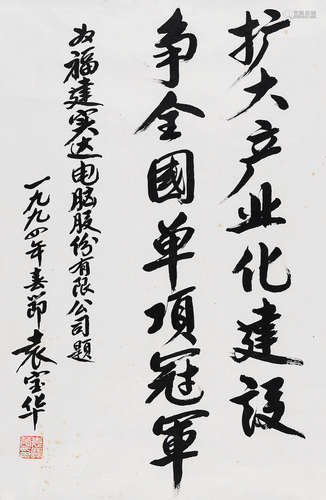 扩大产业化建设
争全國单項冠軍
为福建实达电脑股份有限公司題
一九九四年春节
袁宝华